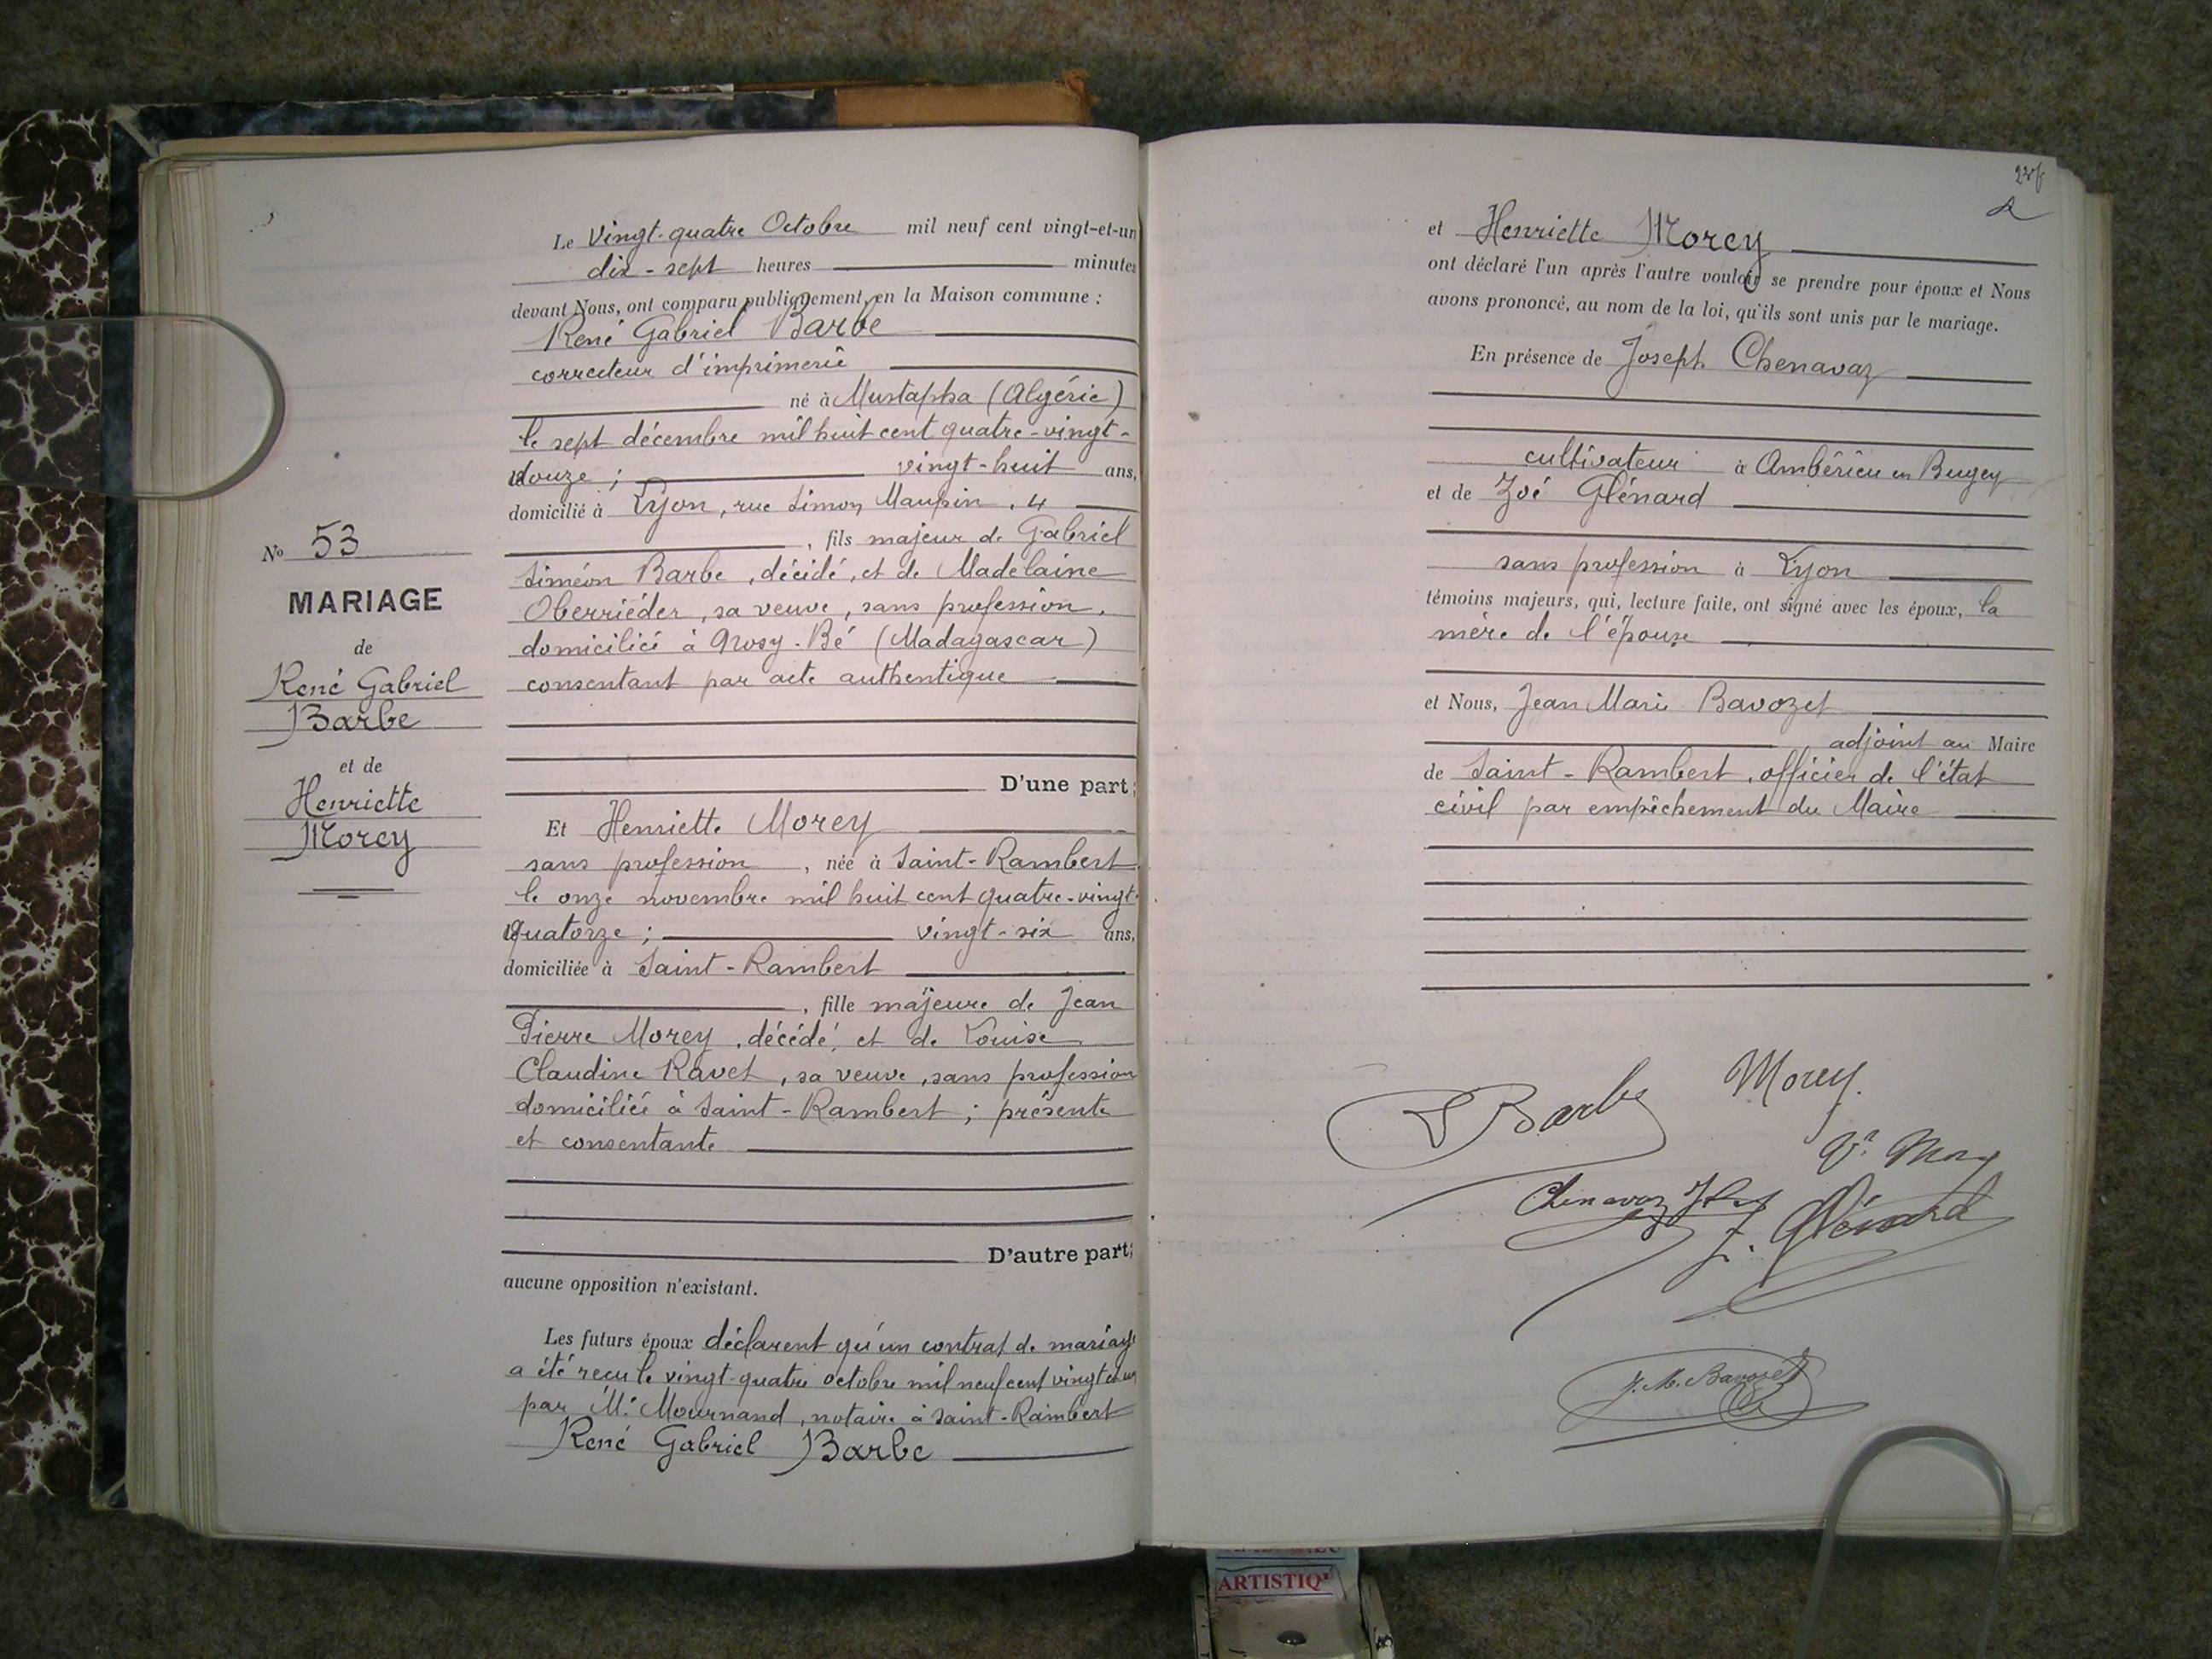 Le Vingt-quatre Octobre mil neuf cent vingt-et-un
dix-sept heures minutes
devant Nous, ont comparu publiquement, en la Maison commune :
René Gabriel Barbe
correcteur d'imprimerie
né à Mustapha (Algérie)
le sept décembre mil huit cent quatre-vingt-
douze ; vingt-huit ans,
domicilié à Lyon, rue Simon Maupin, 4
, fils majeur de Gabriel
Siméon Barbe, décédé, et de Madelaine
Oberriéder, sa veuve, sans profession,
domiciliée à Nosy-Bé (Madagascar)
consentant par acte authentique
D'une part ;
Et Henriette Morey
sans profession, née à Saint-Rambert
le onze novembre mil huit cent quatre-vingt-
quatorze ; vingt-six ans,
domiciliée à Saint-Rambert
, fille majeure de Jean
Pierre Morey, décédé, et de Louise
Claudine Ravet, sa veuve, sans profession
domiciliée à Saint-Rambert ; présente
et consentante
D'autre part ;
aucune opposition n'existant.
Les futurs époux déclarent qu'un contrat de mariage
a été reçu le vingt-quatre octobre mil neuf cent vingt et un
par Me Mournand, notaire à Saint-Rambert
René Gabriel Barbe
No 53
MARIAGE
de
René Gabriel
Barbe
et de
Henriette
Morey
et Henriette Morey
ont déclaré l'un après l'autre vouloir se prendre pour époux et Nous
avons prononcé, au nom de la loi, qu'ils sont unis par le mariage.
En présence de Joseph Chenavaz
cultivateur à Ambérieu en Bugey
et de Zoé Glénard
sans profession à Lyon
témoins majeurs, qui, lecture faite, ont signé avec les époux, la
mère de l'épouse
et Nous, Jean Marie Bavozet
adjoint au Maire
de Saint-Rambert, officier de l'état
civil par empêchement du Maire
Barbe
Morey
Ve Morey
Chenavaz
Z. Glénard
J. M. Bavozet
ARTISTIQ